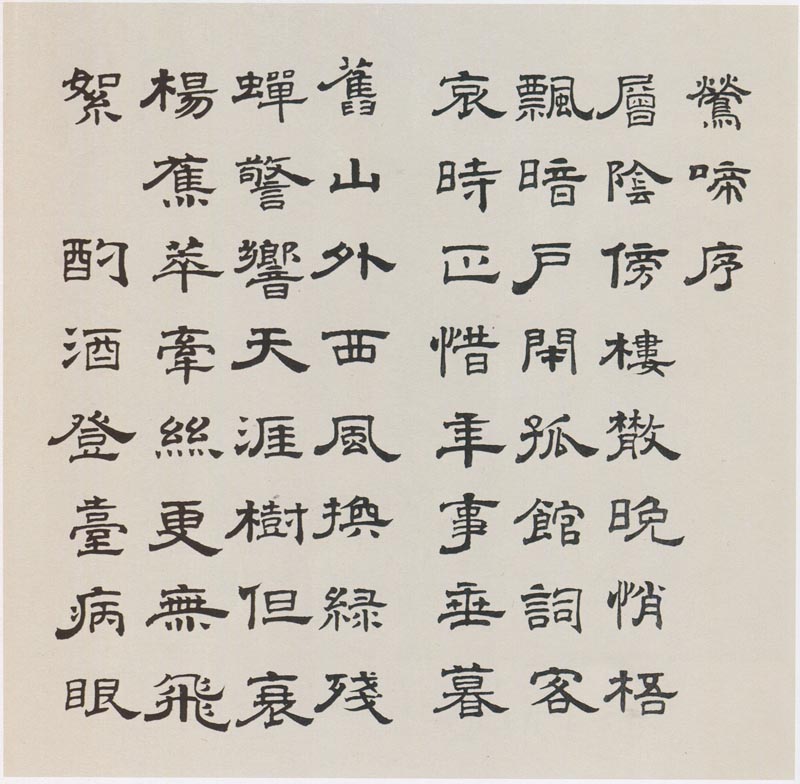 鶯啼序
層陰傍樓散晚悄梧
飄暗戶閉孤館詞客
哀時正惜年事垂暮
舊山外西風換緑殘
蟬警響天涯樹但衰
楊蕉萃牽絲更無飛
絮　酌酒登臺病眼